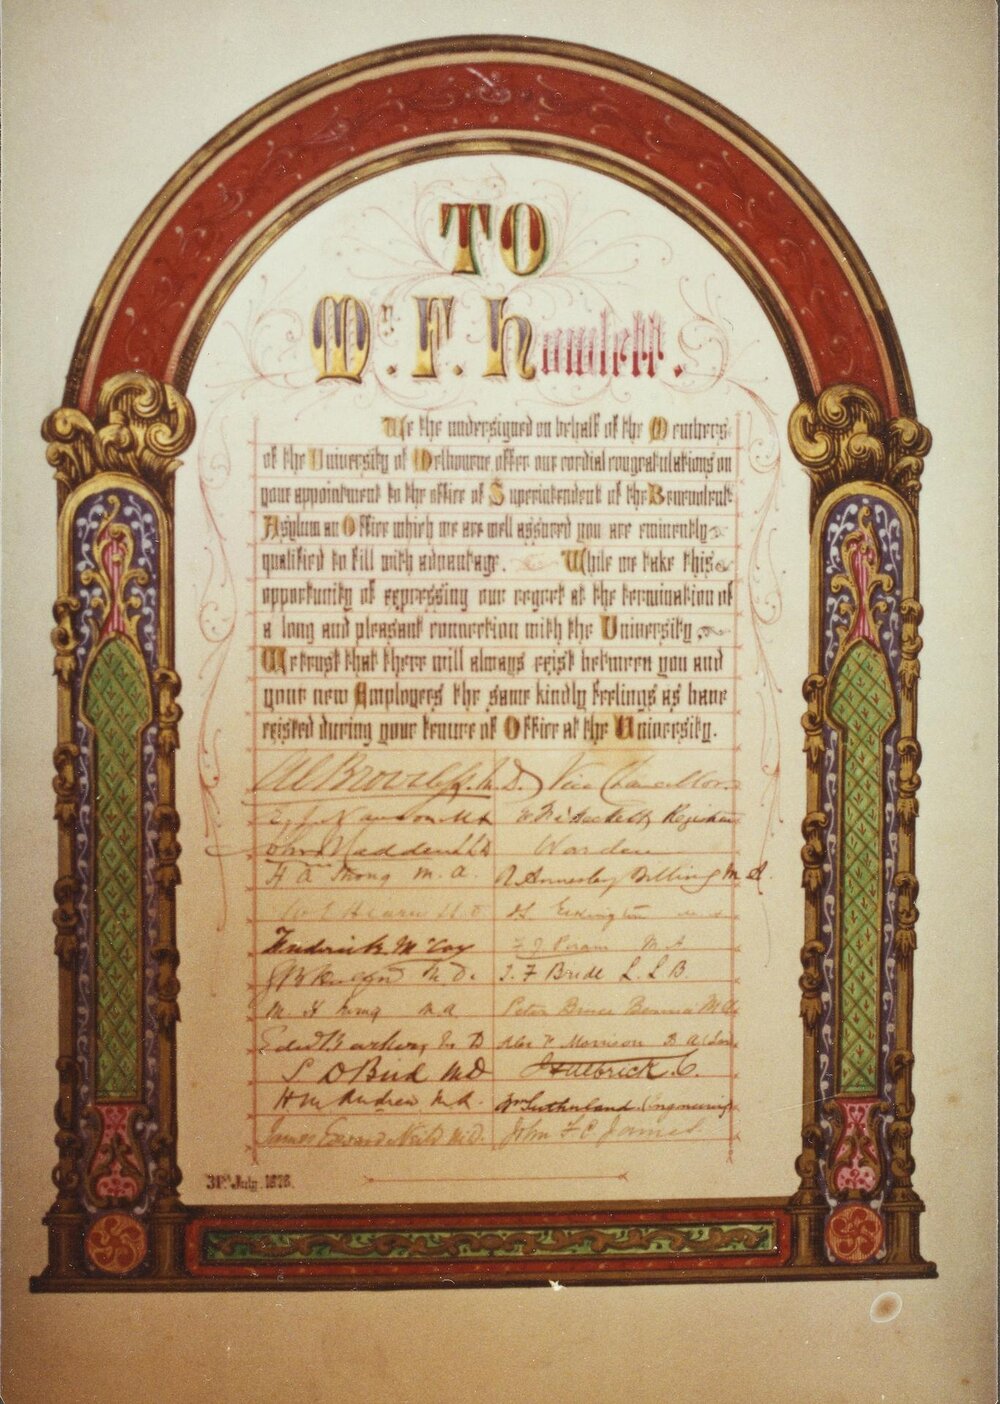 TO
Mr. F. Howlett.
We the undersigned on behalf of the Members
of the University of Melbourne offer our cordial congratulations on
your appointment to the office of Superintendent of the Benevolent
Asylum an Office which we are well assured you are eminently
qualified to fill with advantage. While we take this
opportunity of expressing our regret at the termination of
a long and pleasant connection with the University,
We trust that there will always exist between you and
your new Employees the same kindly feelings as have
existed during your tenure of Office at the University.
M.D. Vice Chancellor.
John Madden LLD Warden
H A Strong M.A. Billing M A.
W E Hearn LLD
Frederick McCoy M A
M.D. T. F Bride L.L.B.
M. H M A Peter Bruce Bennie M A
Edwd Barker M D Alex Morrison B A
S D Bird MD
H M Andrew M.A. Wm Sutherland (Engineering)
James Edward Neild M.D. John F C James
31st July. 1878.